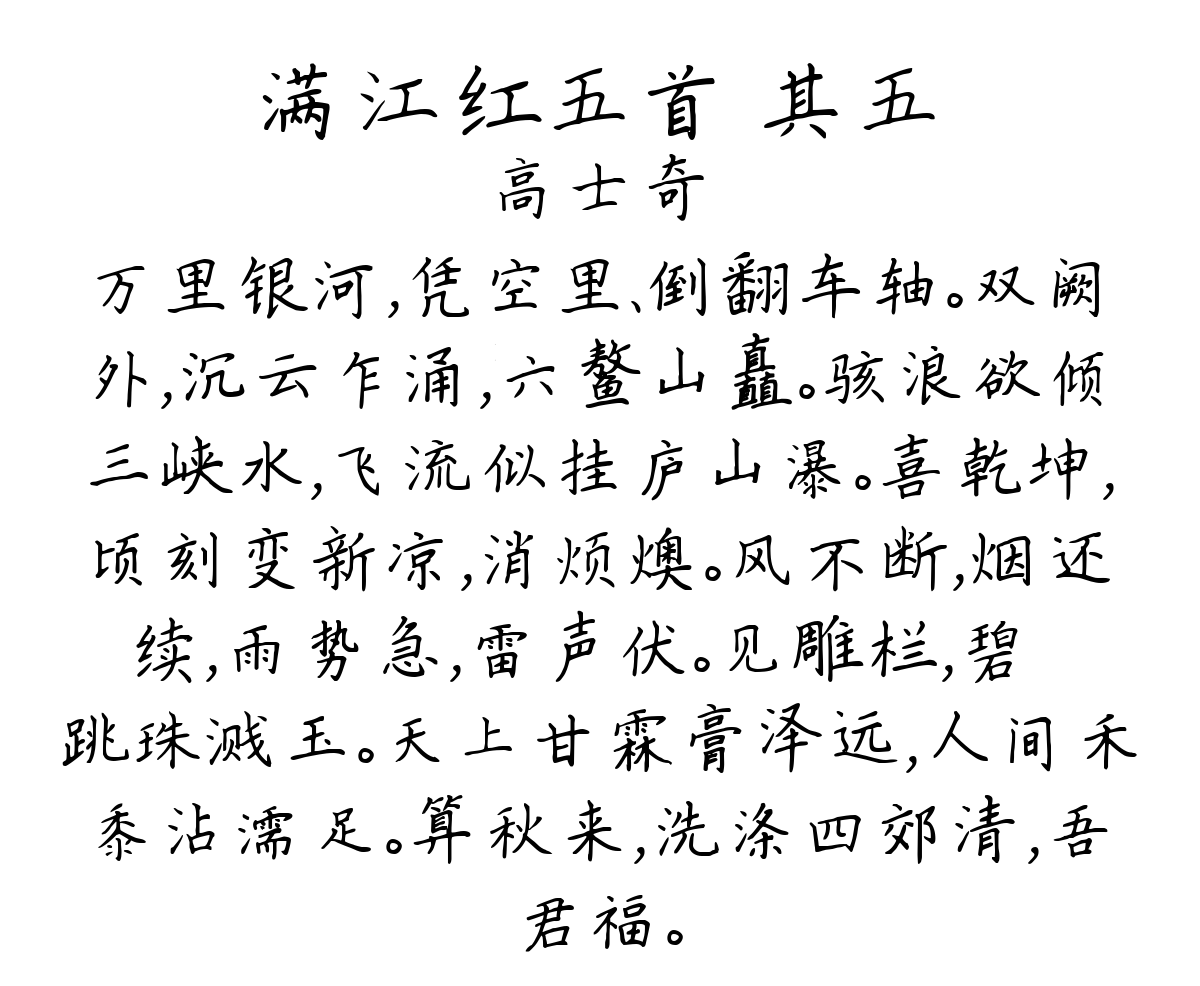 满江红五首 其五
高士奇
万里银河,凭空里、倒翻车轴。双阙
外,沉云乍涌,六鳌山矗。骇浪欲倾
三峡水,飞流似挂庐山瀑。喜乾坤,
顷刻变新凉,消烦燠。风不断,烟还
续,雨势急,雷声伏。见雕栏,碧
跳珠溅玉。天上甘霖膏泽远,人间禾
黍沾濡足。算秋来,洗涤四郊清,吾
君福。